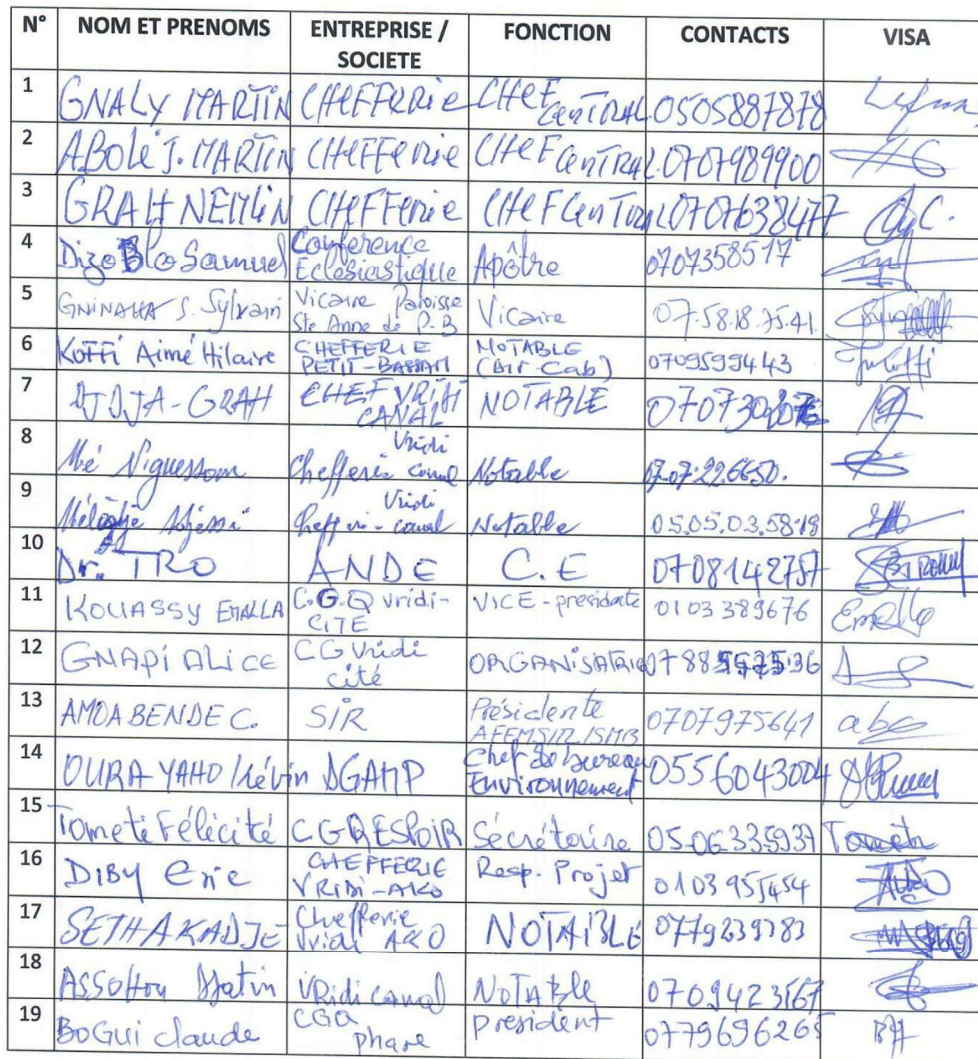 N° NOM ET PRENOMS ENTREPRISE / SOCIETE FONCTION CONTACTS VISA
1 GNALY MARTIN CHEFFERIE CHEF CENTRAL 0505887878
2 ABOLE J. MARTIN CHEFFERIE CHEF CENTRAL 0707989900
3 GRAH NEMLIN CHEFFERIE CHEF CENTRAL 0707638477
4 Dizo Blo Samuel Conférence Eclésiastique Apôtre 0707358517
5 GNINAHA S. Sylvain Vicaire Paroisse Ste Anne de P-B Vicaire 07.58.18.75.41.
6 KOFFI Aimé Hilaire CHEFFERIE PETIT-BASSAM NOTABLE (Dir-Cab) 0709599443
7 DJDJA-GRAH CHEF VRIDI CANAL NOTABLE
8 Mé N'guessan Chefferie Vridi canal Notable 07.07.22.66.50.
9 Chefferie Vridi-canal Notable 05.05.03.58.19
10 Dr. TRO ANDE C.E 0708142757
11 KOUASSY EMALLA C.G.Q Vridi-CITE VICE-presidente 0103389676
12 GNAPI ALICE CG Vridi cité ORGANISATRICE
13 AMOA BENDE C. SIR Présidente AFEMSIR/SMB 0707975641 abc
14 OURA YAHO Kévin DGAMP Chef de bureau Environnement 0556043004
15 Tometi Félicité CGQ ESPOIR Sécrétaire 05.06.335937 Tometi
16 DIBY Eric CHEFFERIE VRIDI-AKO Resp. Projet 0103955454
17 SETH AKADJE Chefferie Vridi AKO NOTABLE 0779239783
18 ASSOHOU Matin VRidi canal NOTABLE 0709423567
19 BOGUI claude CGQ phare president 0779696265